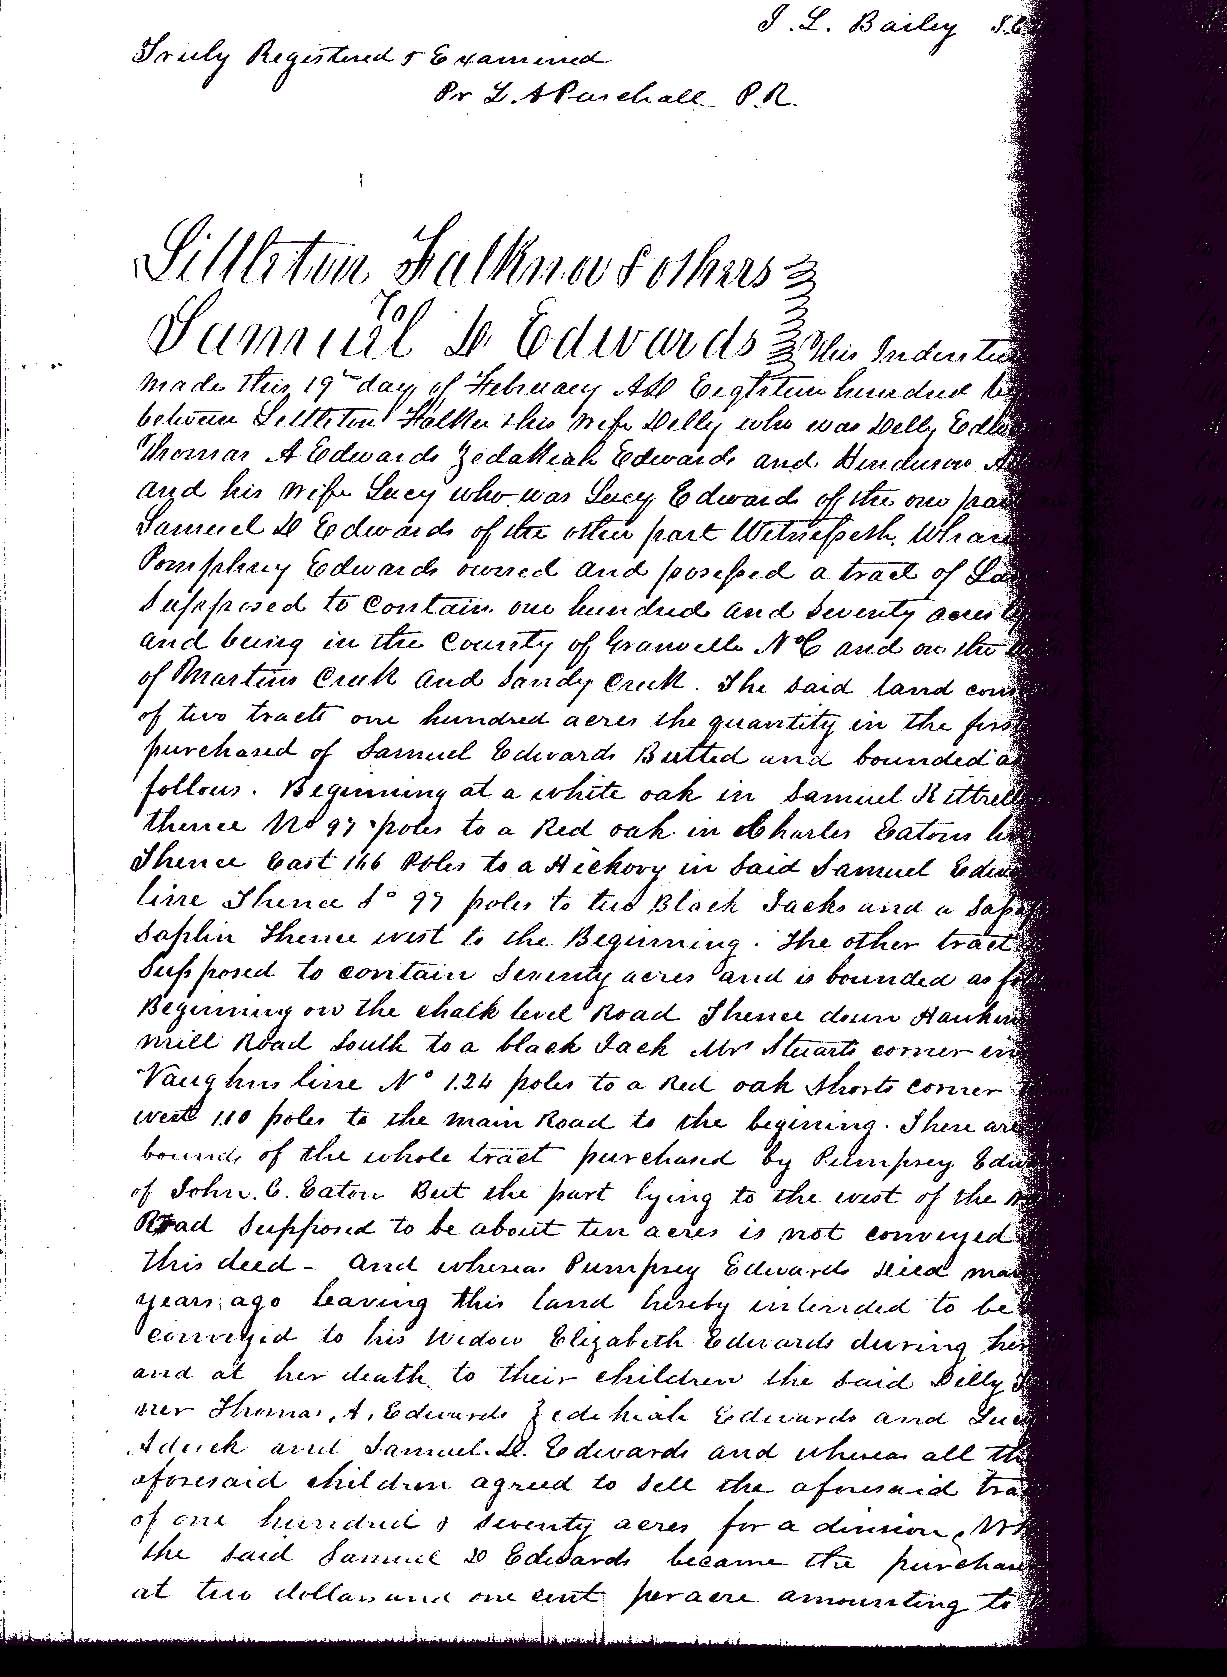 J. L. Bailey
Truly Registered & Examined
Pr L. A Paschall P.R.
Littleton Falkner & others
To
Samuel D Edwards This Indenture
made this 19th day of February AD Eighteen hundred
between Littleton Falkner & his wife Delly who was Delly
Thomas A Edwards Zedakiah Edwards and Henderson
and his wife Lucy who was Lucy Edwards of the one
Samuel D Edwards of the other part Witnesseth,
Pomphrey Edwards owned and posessed a tract of
supposed to contain one hundred and seventy acres
and being in the County of Granville No C and on the
of Martins Creek and Sandy Creek. The said land
of two tracts one hundred acres the quantity in the
purchased of Samuel Edwards Butted and bounded
follows. Beginning at a white oak in Samuel
thence No 97 poles to a Red oak in Charles Eatons
Thence East 166 Poles to a Hickory in said Samuel
line Thence So 97 poles to two Black Jacks and a
Saplin Thence west to the Beginning. The other tract
Supposed to contain seventy acres and is bounded as
Beginning on the chalk level Road Thence down
mill Road South to a black Jack Mrs Stuarts corner in
Vaughns line No 124 poles to a Red oak Shorts corner
west 110 poles to the main Road to the begining. These are
bounds of the whole tract purchased by Pumprey
of John. C. Eaton But the part lying to the west of the
Road Supposed to be about ten acres is not conveyed
this deed - and whereas Pumprey Edwards died
years ago leaving this land hereby intended to be
conveyed to his Widow Elizabeth Edwards during her
and at her death to their children the said Dilly
ner Thomas, A, Edwards Zedekiah Edwards and
Adcock and Samuel. D. Edwards and whereas all
aforesaid children agreed to sell the aforesaid
of one hundred & seventy acres for a division,
the said Samuel D Edwards became the
at two dollars and one cent per acre amounting to